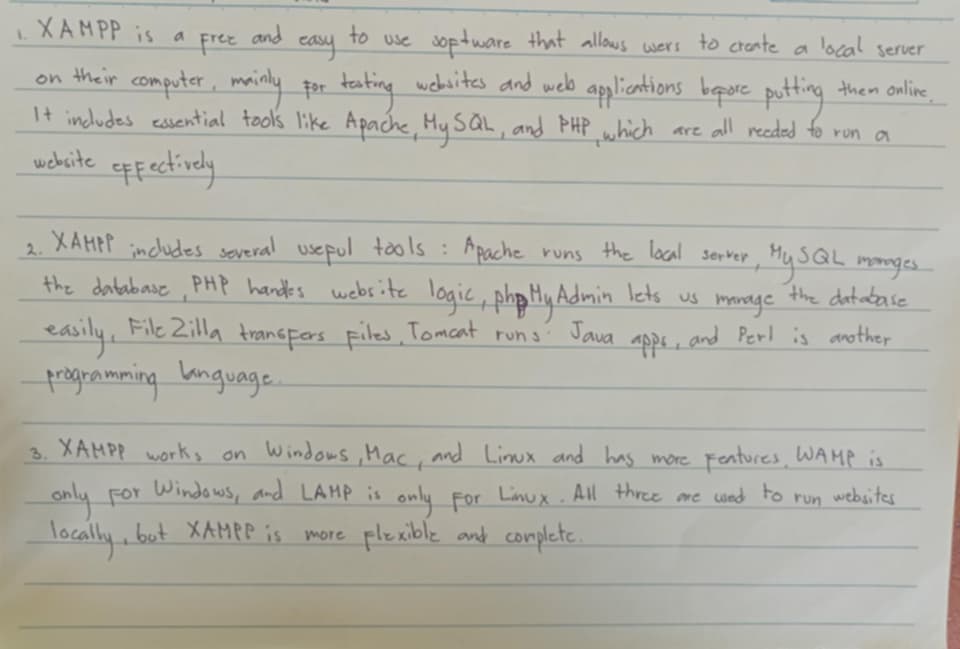 1. XAMPP is a free and easy to use software that allows users to create a local server
on their computer, mainly for testing websites and web applications before putting them online.
It includes essential tools like Apache, MySQL, and PHP, which are all needed to run a
website effectively
2. XAMPP includes several useful tools : Apache runs the local server, MySQL manages
the database, PHP handles website logic, phpMyAdmin lets us manage the database
easily, FileZilla transfers files, Tomcat runs Java apps, and Perl is another
programming language.
3. XAMPP works on Windows, Mac, and Linux and has more features. WAMP is
only for Windows, and LAMP is only for Linux. All three are used to run websites
locally, but XAMPP is more flexible and complete.